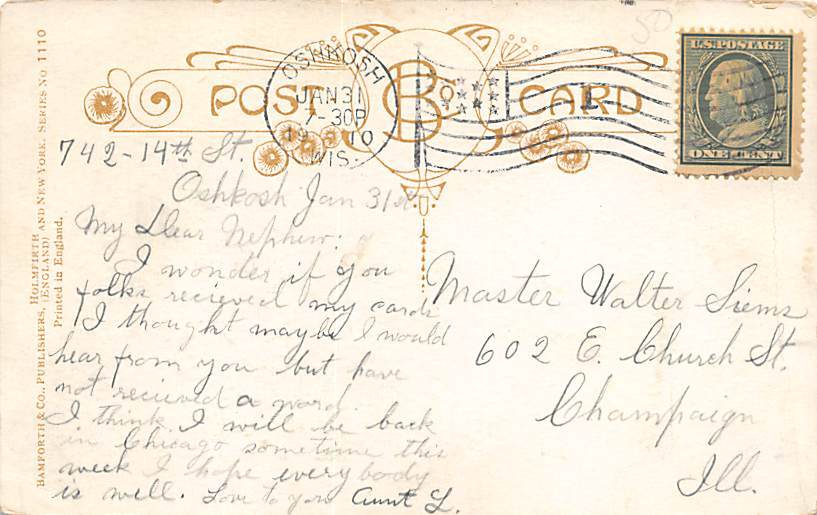 BAMFORTH & CO., PUBLISHERS, HOLMFIRTH (ENGLAND) AND NEW YORK. SERIES NO 1110
Printed in England.
POST CARD
B Co
OSHKOSH
JAN 31
7-30P
1910
WIS.
U.S. POSTAGE
ONE CENT
50
742-14th St.
Oshkosh Jan 31st
My Dear Nephew:
I wonder if you
folks recieved my cards
I thought maybe I would
hear from you but have
not recieved a word.
I think I will be back
in Chicago sometime this
week I hope everybody
is well. Love to you Aunt L.
Master Walter Siems
602 E. Church St.
Champaign
Ill.